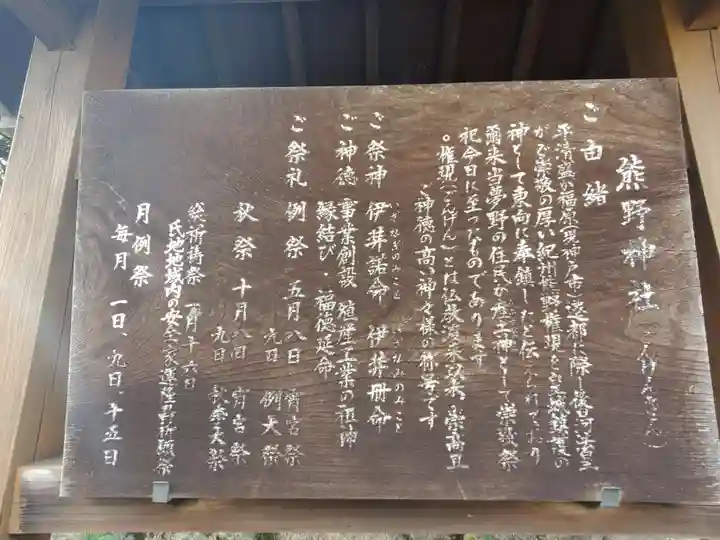 熊野神社(ごんげんさん)
ご由緒
平清盛が福原(現神戸市)遷都に際し後白河法皇
がご崇敬の厚い紀州熊野権現を皇城鎮護の
神として東向に奉鎮したと伝えられており
爾来当夢野の住民が産土神として崇敬祭
祀今日に至ったものであります
○権現(ごんげん)とは仏教渡来以来崇高且
ご神徳の高い神々様の称号です
ご祭神 伊弉諾命 伊弉冊命
いざなぎのみこと いざなみのみこと
ご神徳 事業創設 殖産工業の祖神
縁結び・福徳延命
ご祭礼 例祭 五月八日 宵宮祭
九日 例大祭
秋祭 十月八日 宵宮祭
九日 秋季大祭
祈祷祭 十六日
氏地地域内の安全
月例祭
毎月 一日、九日、十五日